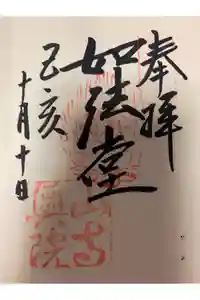 奉拝
如法堂
己亥
十月十日